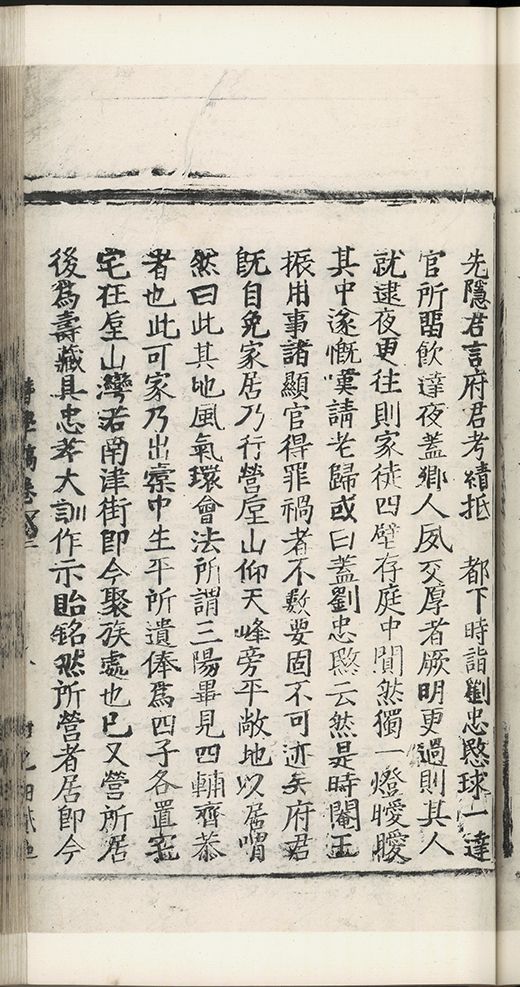 先隱君言府君考績抵　都下時詣劉忠愍球一達
官所留飲達夜蓋鄉人夙交厚者厥明更過則其人
就逮夜更往則家徒四壁存庭中閴然獨一燈曖曖
其中遂慨嘆請老歸或曰蓋劉忠愍云然是時閹王
振用事諸顯官得罪禍者不數要固不可迹矣府君
旣自免家居乃行營垕山仰天峰旁平敞地以居喟
然曰此其地風氣環會法所謂三陽畢見四輔齊恭
者也此可家乃出橐中生平所遺俸爲四子各置宅
宅在垕山灣若南津街即今聚族處也已又營所居
後爲壽藏具忠孝大訓作示貽銘然所營者居即今